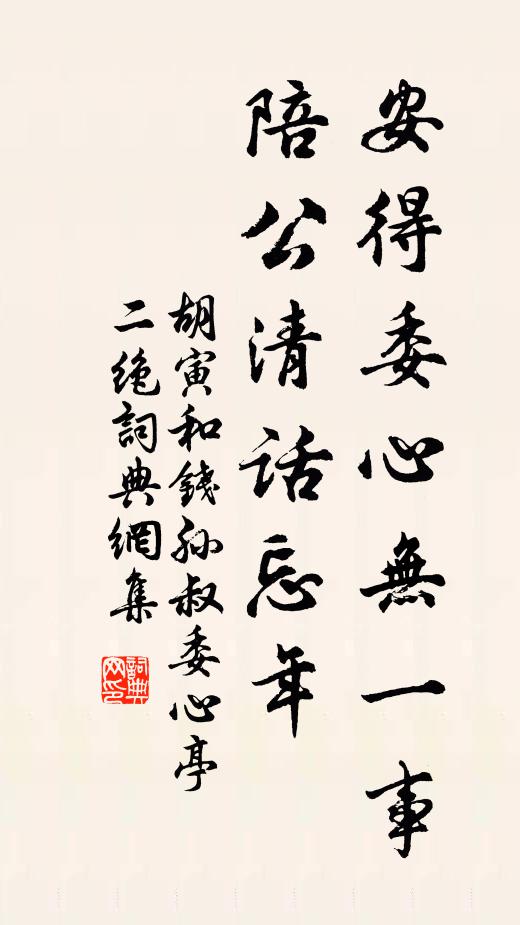 安得委心無一事
陪公清話忘年
胡寅和錢孫叔委心亭
二絶詞典網集
詞典網印